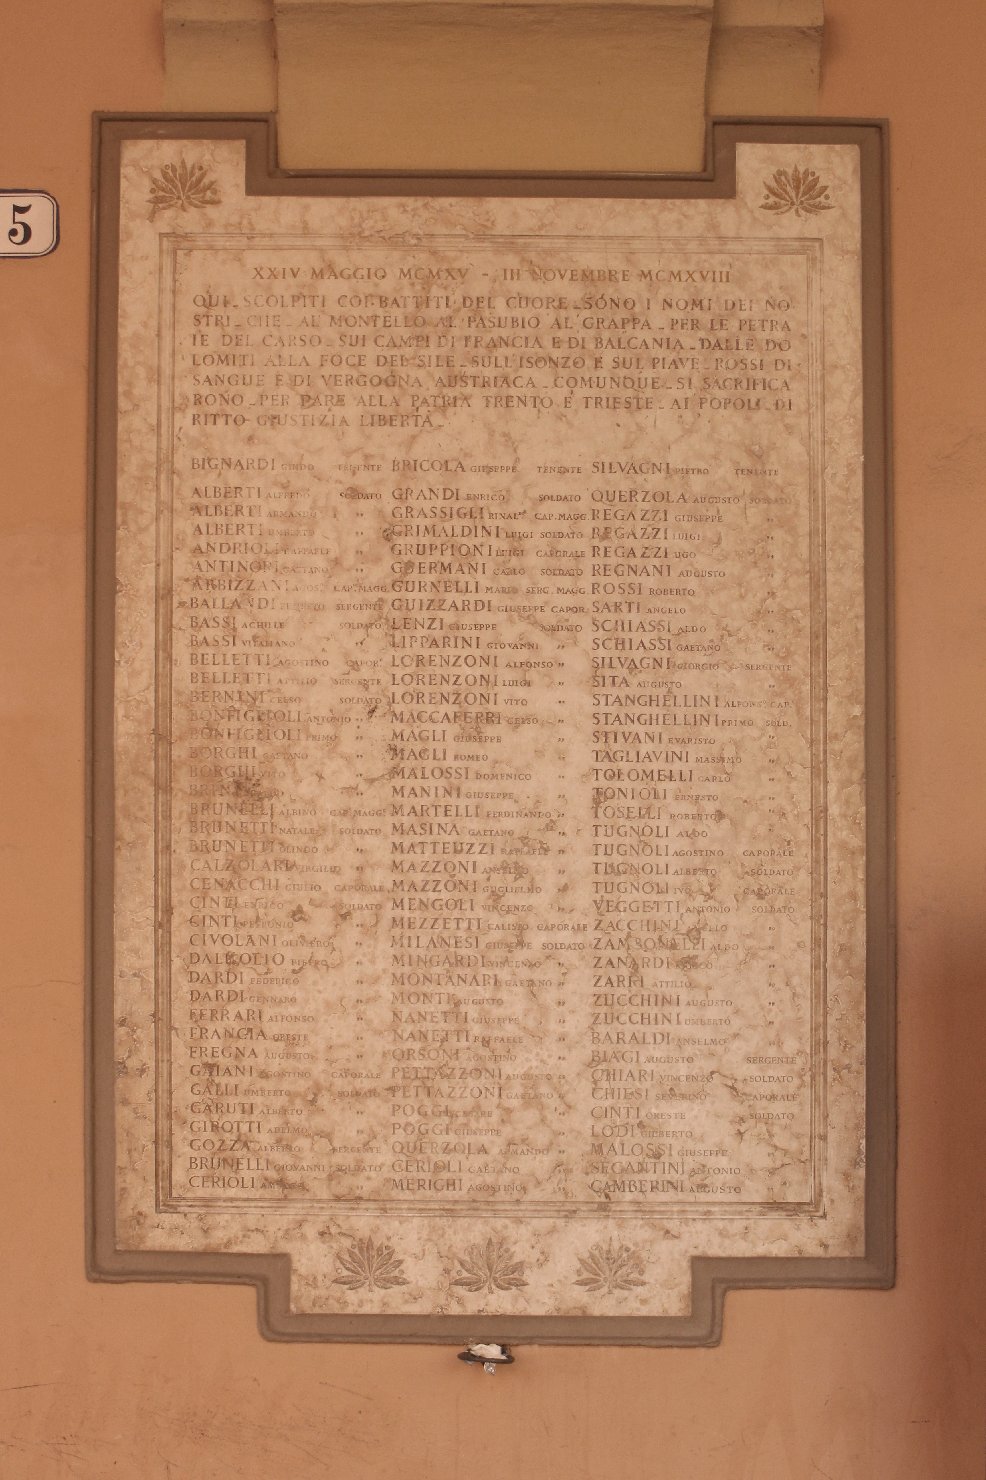 5
XXIV MAGGIO MCMXV - III NOVEMBRE MCMXVIII
QUI SCOLPITI COI BATTITI DEL CUORE SONO I NOMI DEI NO
STRI CHE AL MONTELLO AL PASUBIO AL GRAPPA PER LE PETRA
IE DEL CARSO SUI CAMPI DI FRANCIA E DI BALCANIA DALLE DO
LOMITI ALLA FOCE DEL SILE SULL'ISONZO E SUL PIAVE ROSSI DI
SANGUE E DI VERGOGNA AUSTRIACA COMUNQUE SI SACRIFICA
RONO PER DARE ALLA PATRIA TRENTO E TRIESTE AI POPOLI DI
RITTO GIUSTIZIA LIBERTÀ
BIGNARDI GUIDO TENENTE
ALBERTI ALFREDO SOLDATO
ALBERTI ARMANDO "
ALBERTI UMBERTO "
ANDRIOLI RAFFAELE "
ANTINORI GAETANO "
ARBIZZANI CAP. MAGG.
BALLANDI SERGENTE
BASSI ACHILLE SOLDATO
BASSI VITALIANO "
BELLETTI AGOSTINO CAPOR.
BELLETTI ATTILIO SERGENTE
BERNINI CELSO SOLDATO
BONFIGLIOLI ANTONIO "
BONFIGLIOLI PRIMO "
BORGHI GAETANO "
BORGHI VITO "
BRINI "
BRUNELLI ALBINO CAP. MAGG.
BRUNETTI NATALE SOLDATO
BRUNETTI OLINDO "
CALZOLARI VIRGILIO "
CENACCHI GIULIO CAPORALE
CINTI ENRICO SOLDATO
CINTI PETRONIO "
CIVOLANI OLIVIERO "
DALLOLIO PIETRO "
DARDI FEDERICO "
DARDI GENNARO "
FERRARI ALFONSO "
FRANCIA ORESTE "
FREGNA AUGUSTO "
GAIANI AGOSTINO CAPORALE
GALLI UMBERTO SOLDATO
GARUTI ALBERTO "
GIROTTI ADELMO "
GOZZA ALBERTO SERGENTE
BRUNELLI GIOVANNI SOLDATO
CERIOLI "
BRICOLA GIUSEPPE TENENTE
GRANDI ENRICO SOLDATO
GRASSIGLI RINAL° CAP. MAGG.
GRIMALDINI LUIGI SOLDATO
GRUPPIONI LUIGI CAPORALE
GUERMANI CARLO SOLDATO
GURNELLI MARIO SERG. MAGG.
GUIZZARDI GIUSEPPE CAPOR.
LENZI GIUSEPPE SOLDATO
LIPPARINI GIOVANNI "
LORENZONI ALFONSO "
LORENZONI LUIGI "
LORENZONI VITO "
MACCAFERRI CELSO "
MAGLI GIUSEPPE "
MAGLI ROMEO "
MALOSSI DOMENICO "
MANINI GIUSEPPE "
MARTELLI FERDINANDO "
MASINA GAETANO "
MATTEUZZI RAFFAELE "
MAZZONI ANSELMO "
MAZZONI GUGLIELMO "
MENGOLI VINCENZO "
MEZZETTI CALISTO CAPORALE
MILANESI GIUSEPPE SOLDATO
MINGARDI VINCENZO "
MONTANARI GAETANO "
MONTI AUGUSTO "
NANETTI GIUSEPPE "
NANETTI RAFFAELE "
ORSONI AGOSTINO "
PETTAZZONI AUGUSTO "
PETTAZZONI GAETANO "
POGGI CESARE "
POGGI GIUSEPPE "
QUERZOLA ARMANDO "
CERIOLI GAETANO "
MERIGHI AGOSTINO "
SILVAGNI PIETRO TENENTE
QUERZOLA AUGUSTO SOLDATO
REGAZZI GIUSEPPE "
REGAZZI LUIGI "
REGAZZI UGO "
REGNANI AUGUSTO "
ROSSI ROBERTO "
SARTI ANGELO "
SCHIASSI ALDO "
SCHIASSI GAETANO "
SILVAGNI GIORGIO SERGENTE
SITA AUGUSTO "
STANGHELLINI ALFONS° CAP.
STANGHELLINI PRIMO SOLD.
STIVANI EVARISTO "
TAGLIAVINI MASSIMO "
TOLOMELLI CARLO "
TONIOLI ERNESTO "
TOSELLI ROBERTO "
TUGNOLI ALDO "
TUGNOLI AGOSTINO CAPORALE
TUGNOLI ALBERTO SOLDATO
TUGNOLI IVO CAPORALE
VEGGETTI ANTONIO SOLDATO
ZACCHINI "
ZAMBONELLI ALDO "
ZANARDI "
ZARRI ATTILIO "
ZUCCHINI AUGUSTO "
ZUCCHINI UMBERTO "
BARALDI ANSELMO "
BIAGI AUGUSTO SERGENTE
CHIARI VINCENZO SOLDATO
CHIESI SEVERINO CAPORALE
CINTI ORESTE SOLDATO
LODI GILBERTO "
MALOSSI GIUSEPPE "
SEGANTINI ANTONIO "
GAMBERINI AUGUSTO "